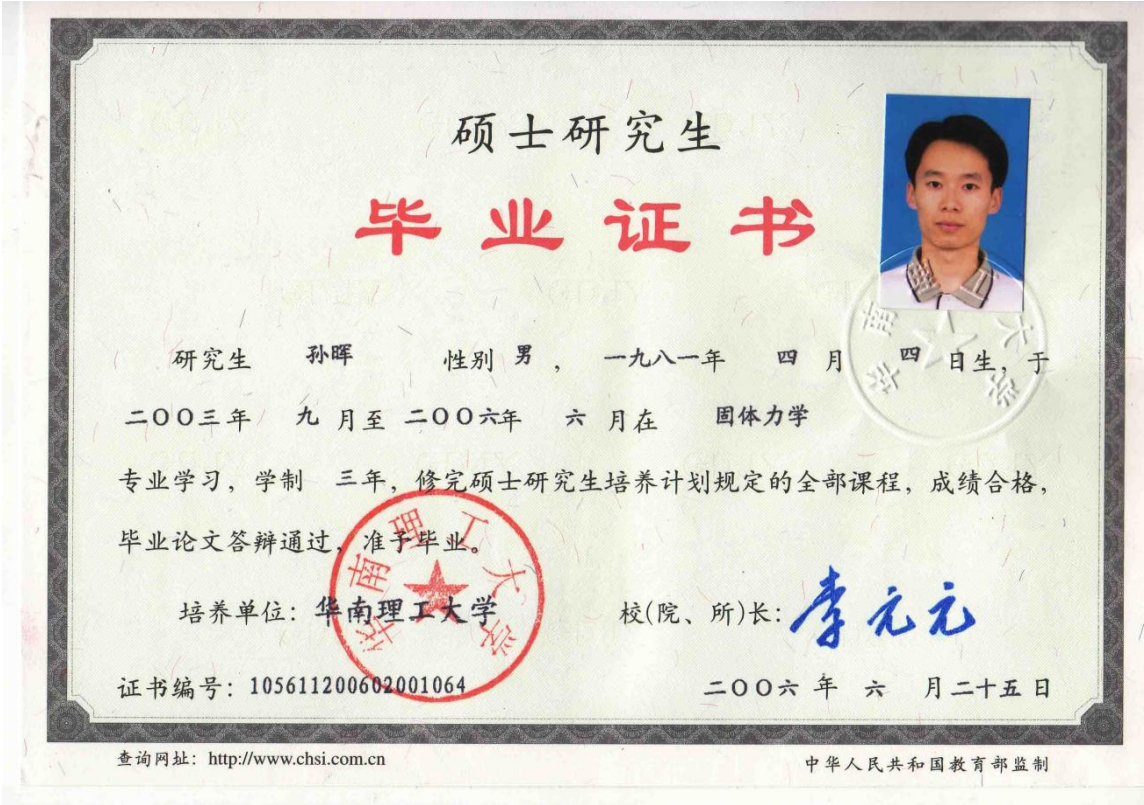 硕士研究生
毕业证书
研究生 孙晖 性别 男 ， 一九八一年 四 月 四 日生，于
二〇〇三年 九 月至 二〇〇六年 六 月在 固体力学
专业学习，学制 三年，修完硕士研究生培养计划规定的全部课程，成绩合格，
毕业论文答辩通过，准予毕业。
华南理工大学
培养单位：华南理工大学 校(院、所)长：李元元
华南理工大学
证书编号：105611200602001064 二〇〇六 年 六 月二十五日
查询网址：http://www.chsi.com.cn 中华人民共和国教育部监制